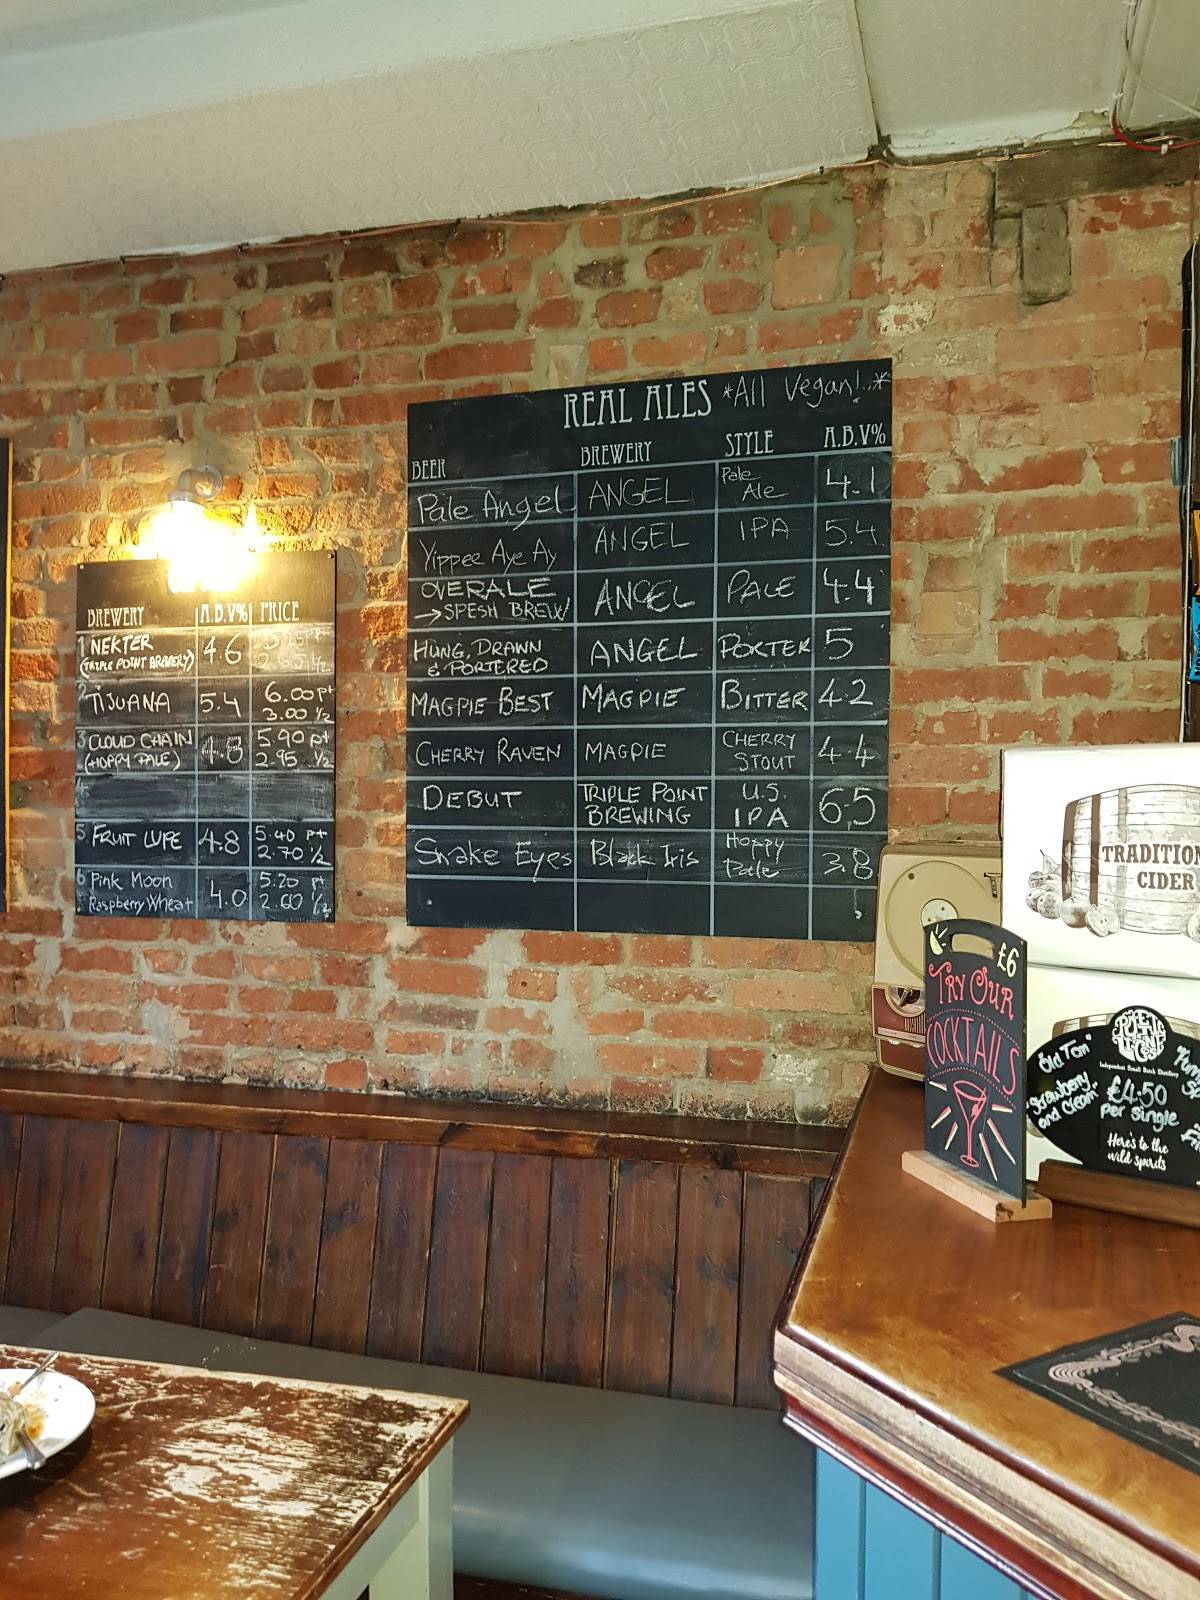 BREWERY A.B.V% PRICE
1 NEKTER 4.6
(TRIPLE POINT BREWERY)
2 TIJUANA 5.4 6.00 pt
3.00 ½
3 CLOUD CHAIN 4.8 5.90 pt
(HOPPY PALE) 2.95 ½
4
5 FRUIT LUPE 4.8 5.40 pt
2.70 ½
6 Pink Moon 4.0 5.20 pt
Raspberry Wheat 2.60 ½
REAL ALES *All Vegan!..*
BEER BREWERY STYLE A.B.V%
Pale Angel ANGEL Pale Ale 4.1
Yippee Aye Ay ANGEL IPA 5.4
OVERALE ANGEL PALE 4.4
→ SPESH BREW
HUNG, DRAWN ANGEL PORTER 5
& PORTERED
MAGPIE BEST MAGPIE BITTER 4.2
CHERRY RAVEN MAGPIE CHERRY STOUT 4.4
DEBUT TRIPLE POINT BREWING U.S. IPA 6.5
Snake Eyes Black Iris Hoppy Pale 3.8
TRADITION
CIDER
£6
TRY OUR
COCKTAILS
Independent Small Batch Distillery
"Old Tom"
"Strawberry
and Cream"
£4.50
per single
Here's to the
wild spirits